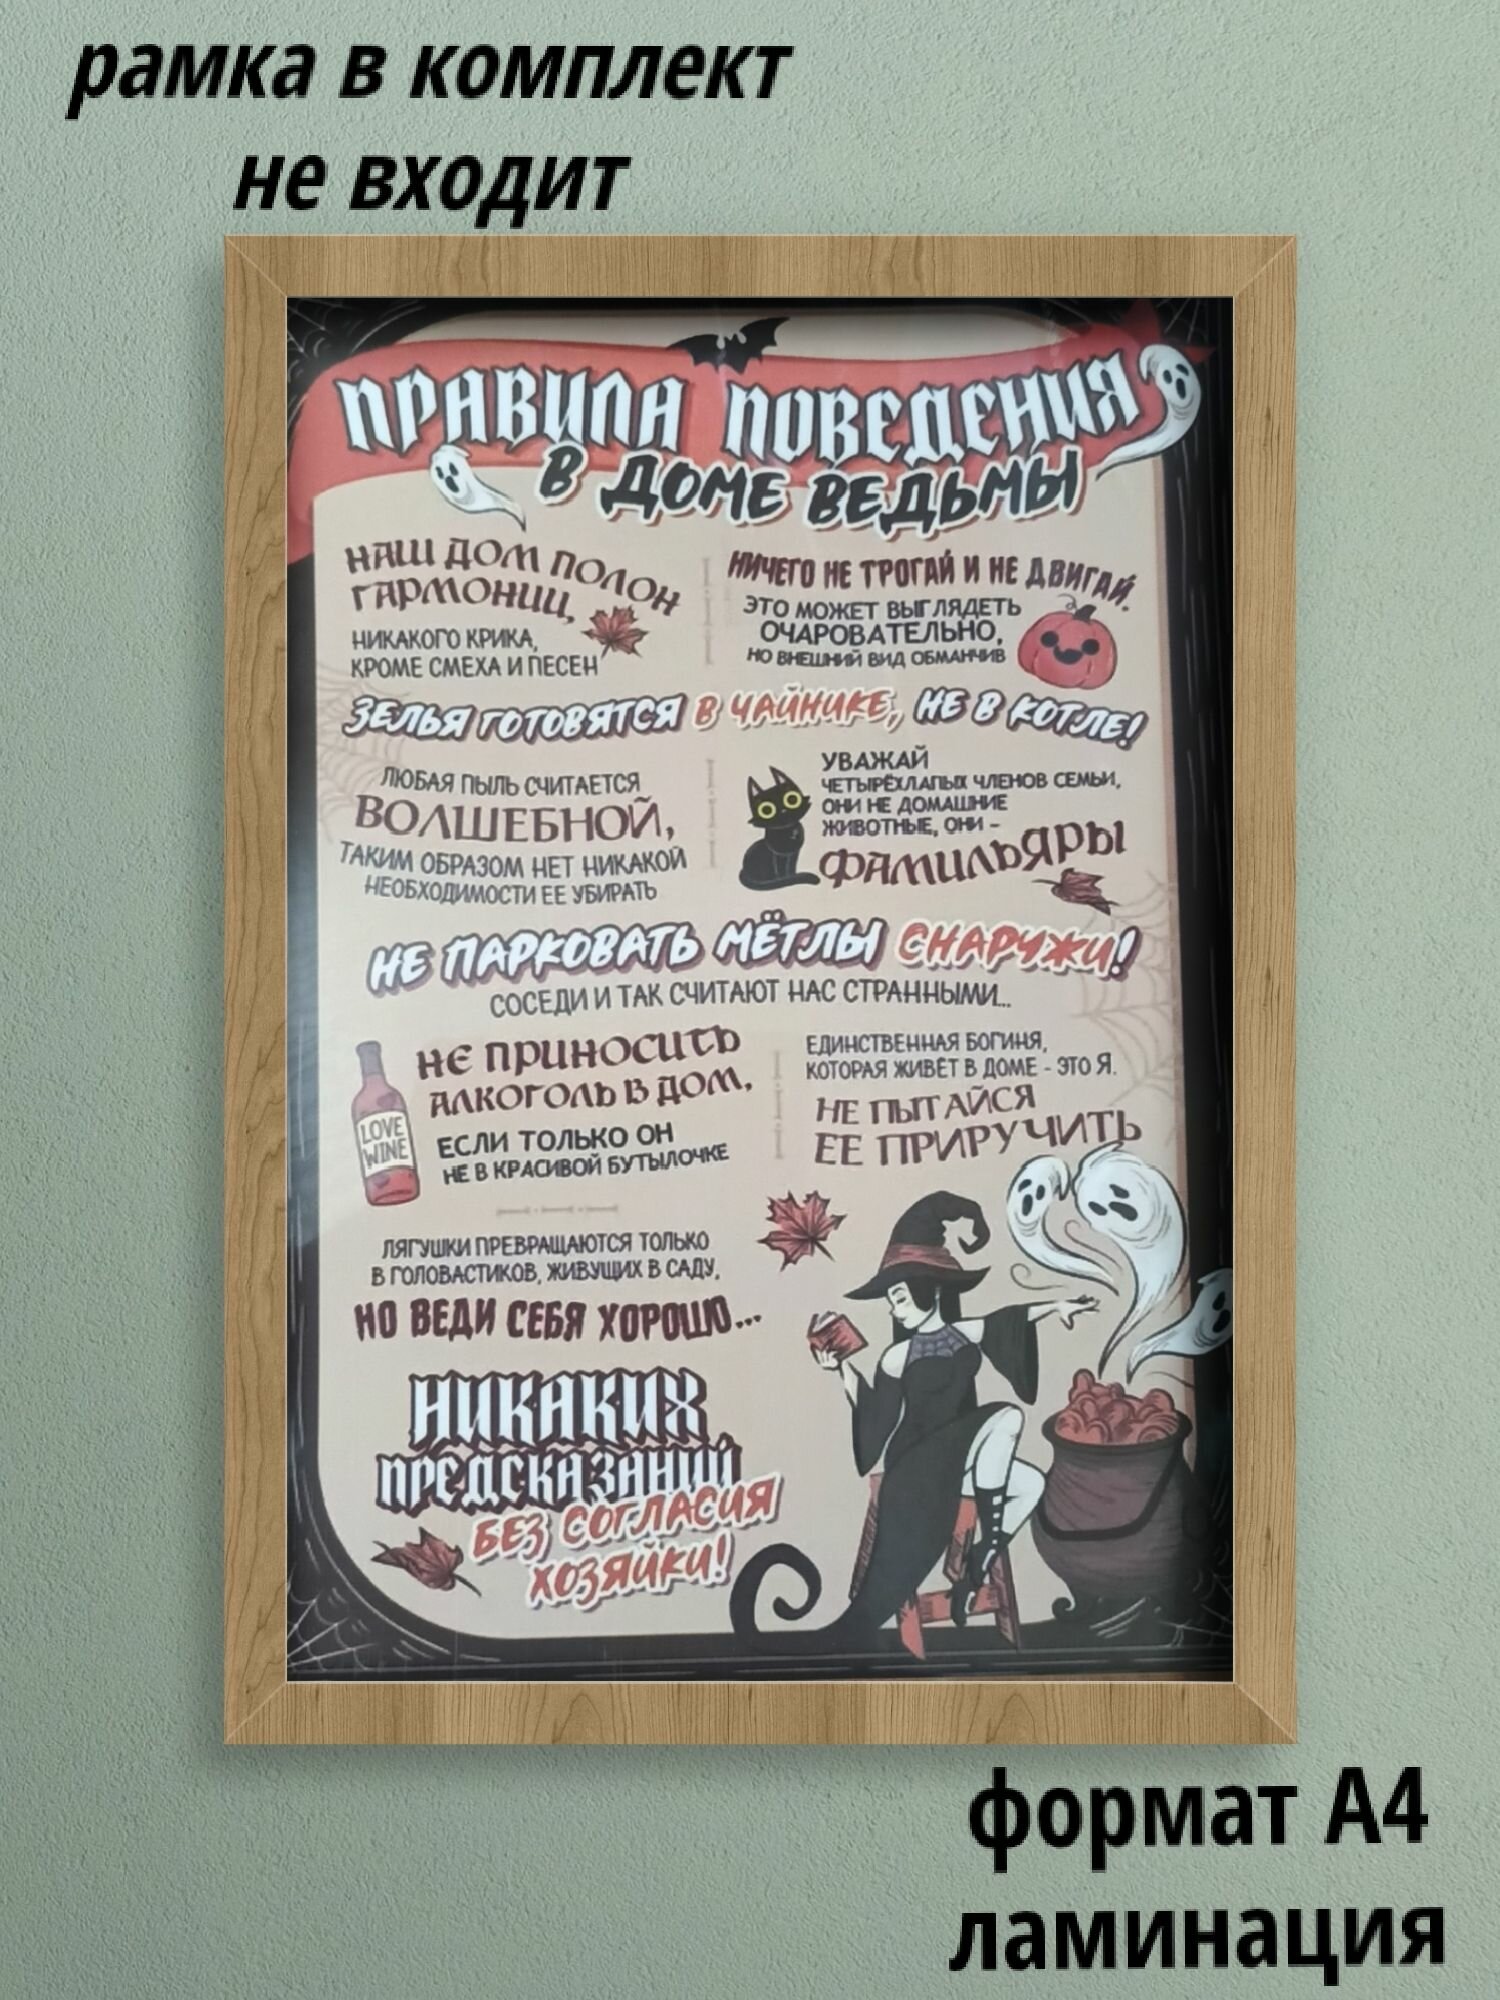 рамка в комплект
не входит
ПРАВИЛА ПОВЕДЕНИЯ
В ДОМЕ ВЕДЬМЫ
НАШ ДОМ ПОЛОН
ГАРМОНИИ,
НИКАКОГО КРИКА,
КРОМЕ СМЕХА И ПЕСЕН
НИЧЕГО НЕ ТРОГАЙ И НЕ ДВИГАЙ.
ЭТО МОЖЕТ ВЫГЛЯДЕТЬ
ОЧАРОВАТЕЛЬНО,
НО ВНЕШНИЙ ВИД ОБМАНЧИВ
ЗЕЛЬЯ ГОТОВЯТСЯ В ЧАЙНИКЕ, НЕ В КОТЛЕ!
ЛЮБАЯ ПЫЛЬ СЧИТАЕТСЯ
ВОЛШЕБНОЙ,
ТАКИМ ОБРАЗОМ НЕТ НИКАКОЙ
НЕОБХОДИМОСТИ ЕЕ УБИРАТЬ
УВАЖАЙ
ЧЕТЫРЁХЛАПЫХ ЧЛЕНОВ СЕМЬИ,
ОНИ НЕ ДОМАШНИЕ
ЖИВОТНЫЕ, ОНИ –
ФАМИЛЬЯРЫ
НЕ ПАРКОВАТЬ МЁТЛЫ СНАРУЖИ!
СОСЕДИ И ТАК СЧИТАЮТ НАС СТРАННЫМИ...
LOVE
WINE
НЕ ПРИНОСИТЬ
АЛКОГОЛЬ В ДОМ,
ЕСЛИ ТОЛЬКО ОН
НЕ В КРАСИВОЙ БУТЫЛОЧКЕ
ЕДИНСТВЕННАЯ БОГИНЯ,
КОТОРАЯ ЖИВЁТ В ДОМЕ - ЭТО Я.
НЕ ПЫТАЙСЯ
ЕЕ ПРИРУЧИТЬ
ЛЯГУШКИ ПРЕВРАЩАЮТСЯ ТОЛЬКО
В ГОЛОВАСТИКОВ, ЖИВУЩИХ В САДУ,
НО ВЕДИ СЕБЯ ХОРОШО...
НИКАКИХ
ПРЕДСКАЗАНИЙ
БЕЗ СОГЛАСИЯ
ХОЗЯЙКИ!
формат А4
ламинация